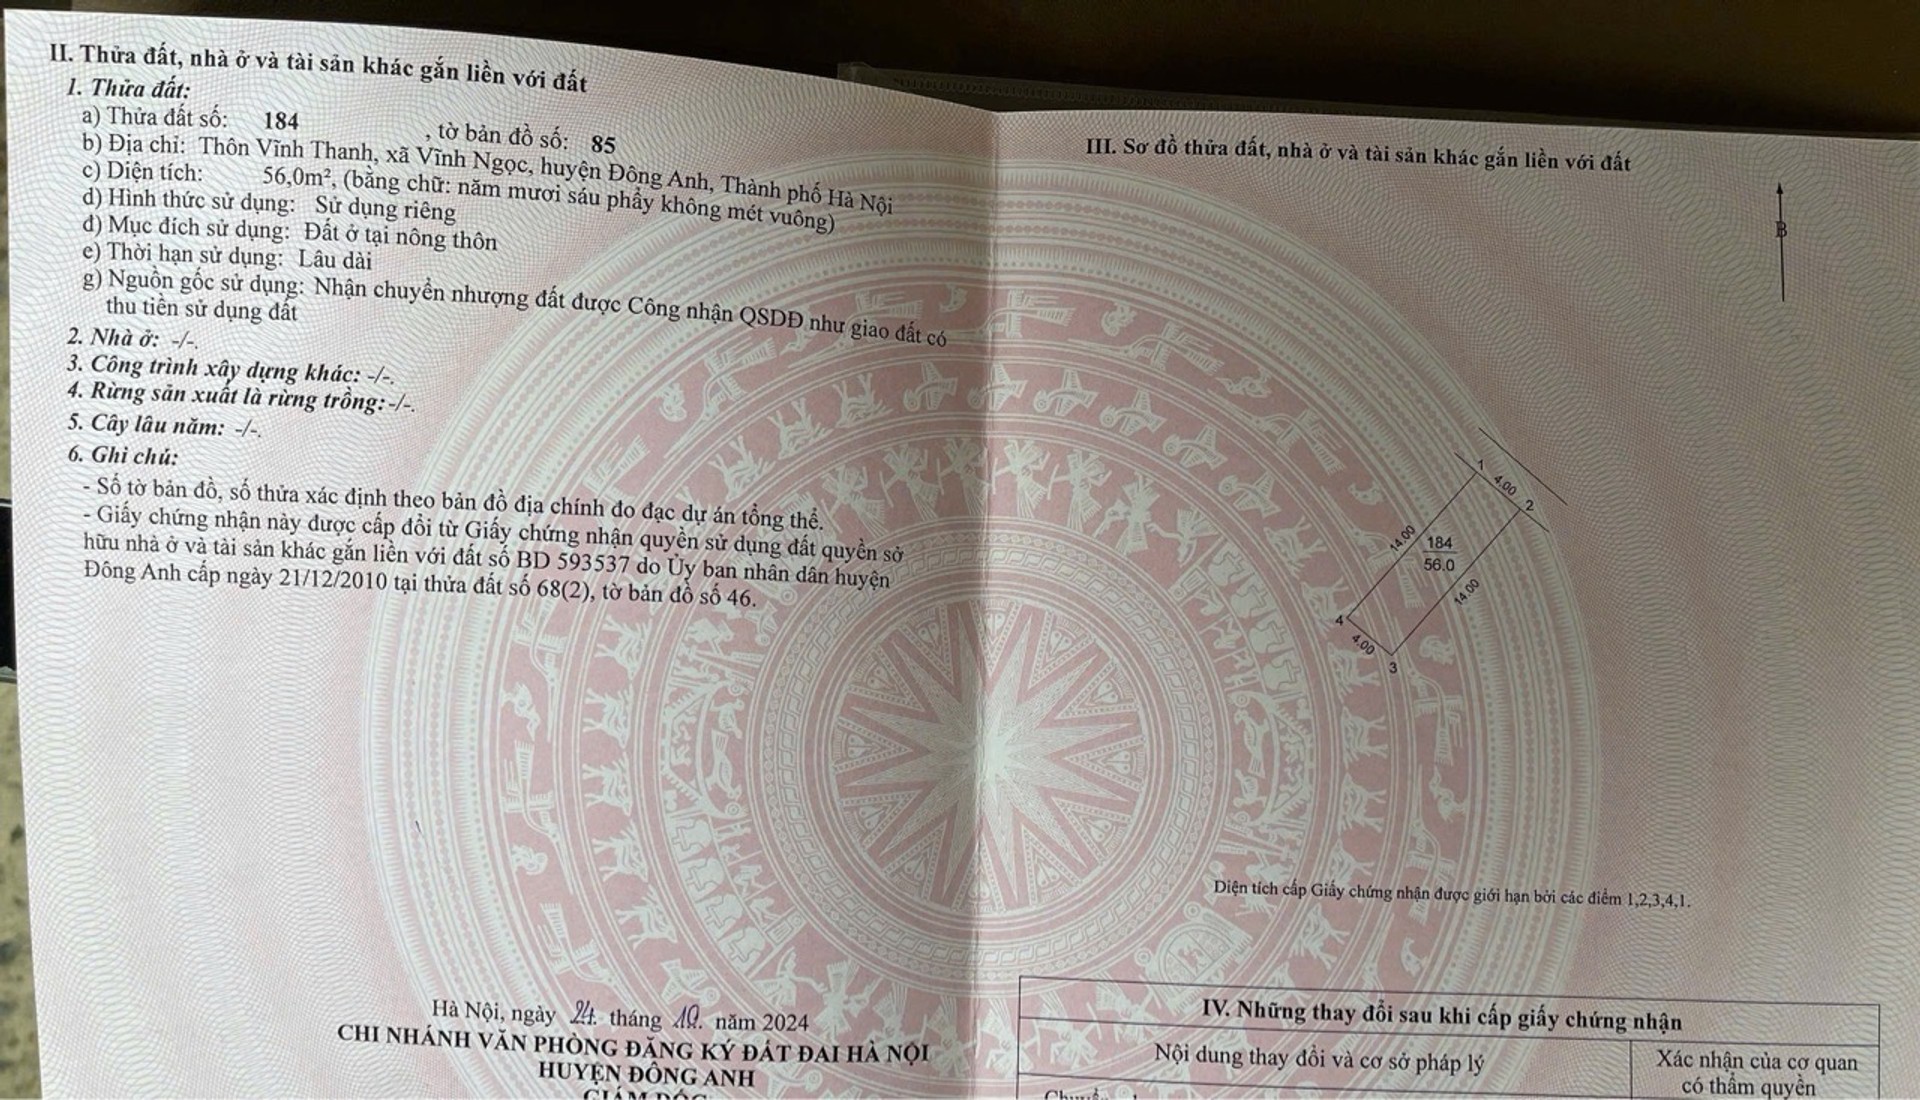 II. Thửa đất, nhà ở và tài sản khác gắn liền với đất
1. Thửa đất:
a) Thửa đất số: 184 , tờ bản đồ số: 85
b) Địa chỉ: Thôn Vĩnh Thanh, xã Vĩnh Ngọc, huyện Đông Anh, Thành phố Hà Nội
c) Diện tích: 56,0m², (bằng chữ: năm mươi sáu phẩy không mét vuông)
d) Hình thức sử dụng: Sử dụng riêng
đ) Mục đích sử dụng: Đất ở tại nông thôn
e) Thời hạn sử dụng: Lâu dài
g) Nguồn gốc sử dụng: Nhận chuyển nhượng đất được Công nhận QSDĐ như giao đất có
thu tiền sử dụng đất
2. Nhà ở: -/-.
3. Công trình xây dựng khác: -/-.
4. Rừng sản xuất là rừng trồng:-/-.
5. Cây lâu năm: -/-.
6. Ghi chú:
- Số tờ bản đồ, số thửa xác định theo bản đồ địa chính đo đạc dự án tổng thể.
- Giấy chứng nhận này được cấp đổi từ Giấy chứng nhận quyền sử dụng đất quyền sở
hữu nhà ở và tài sản khác gắn liền với đất số BD 593537 do Ủy ban nhân dân huyện
Đông Anh cấp ngày 21/12/2010 tại thửa đất số 68(2), tờ bản đồ số 46.
Hà Nội, ngày 24 tháng 10. năm 2024
CHI NHÁNH VĂN PHÒNG ĐĂNG KÝ ĐẤT ĐAI HÀ NỘI
HUYỆN ĐÔNG ANH
GIÁM ĐỐC
III. Sơ đồ thửa đất, nhà ở và tài sản khác gắn liền với đất
B
1
4.00
2
14.00
184
56.0
14.00
4
4.00
3
Diện tích cấp Giấy chứng nhận được giới hạn bởi các điểm 1,2,3,4,1.
IV. Những thay đổi sau khi cấp giấy chứng nhận
Nội dung thay đổi và cơ sở pháp lý
Xác nhận của cơ quan
có thẩm quyền